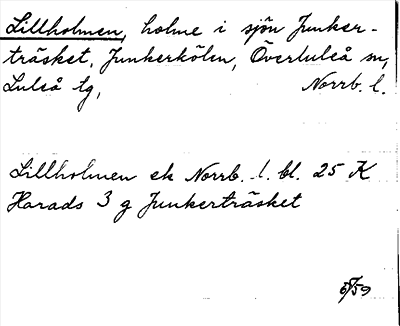 Lillholmen, holme i sjön Junker-
träsket, Junkerkölen, Överluleå sn,
Luleå tg, Norrb. l.
Lillholmen ek Norrb. l. bl. 25 K
Harads 3 g Junkerträsket
5/59